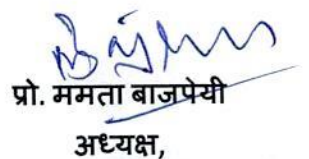 प्रो. ममता बाजपेयी
अध्यक्ष,